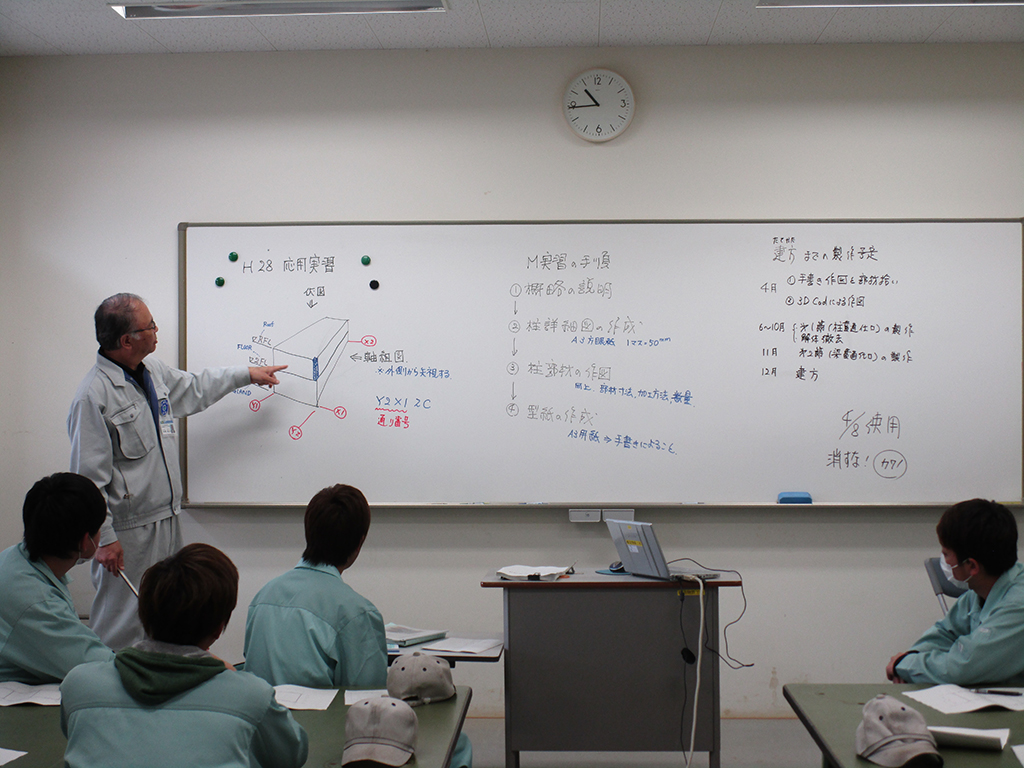 H.28 応用実習
伏図
Roof
RFL
FLOOR
2FL
X2
軸組図
※外側から矢視する.
Y1
X1
Y2
Y2×1 2C
通り番号
M実習の手順
① 概略の説明
② 柱詳細図の作成
A3方眼紙 1マス=50mm
③ 柱部材の作図
部材寸法、加工方法、数量
④ 型紙の作成
A3用紙 ⇒ 手書きによること
たてかた
建方 までの製作予定
4月 ①手書き作図と部材拾い
② 3D Cadによる作図
6~10月
解体撤去
11月
12月 建方
4/8使用
消すな!
12
3
6
9